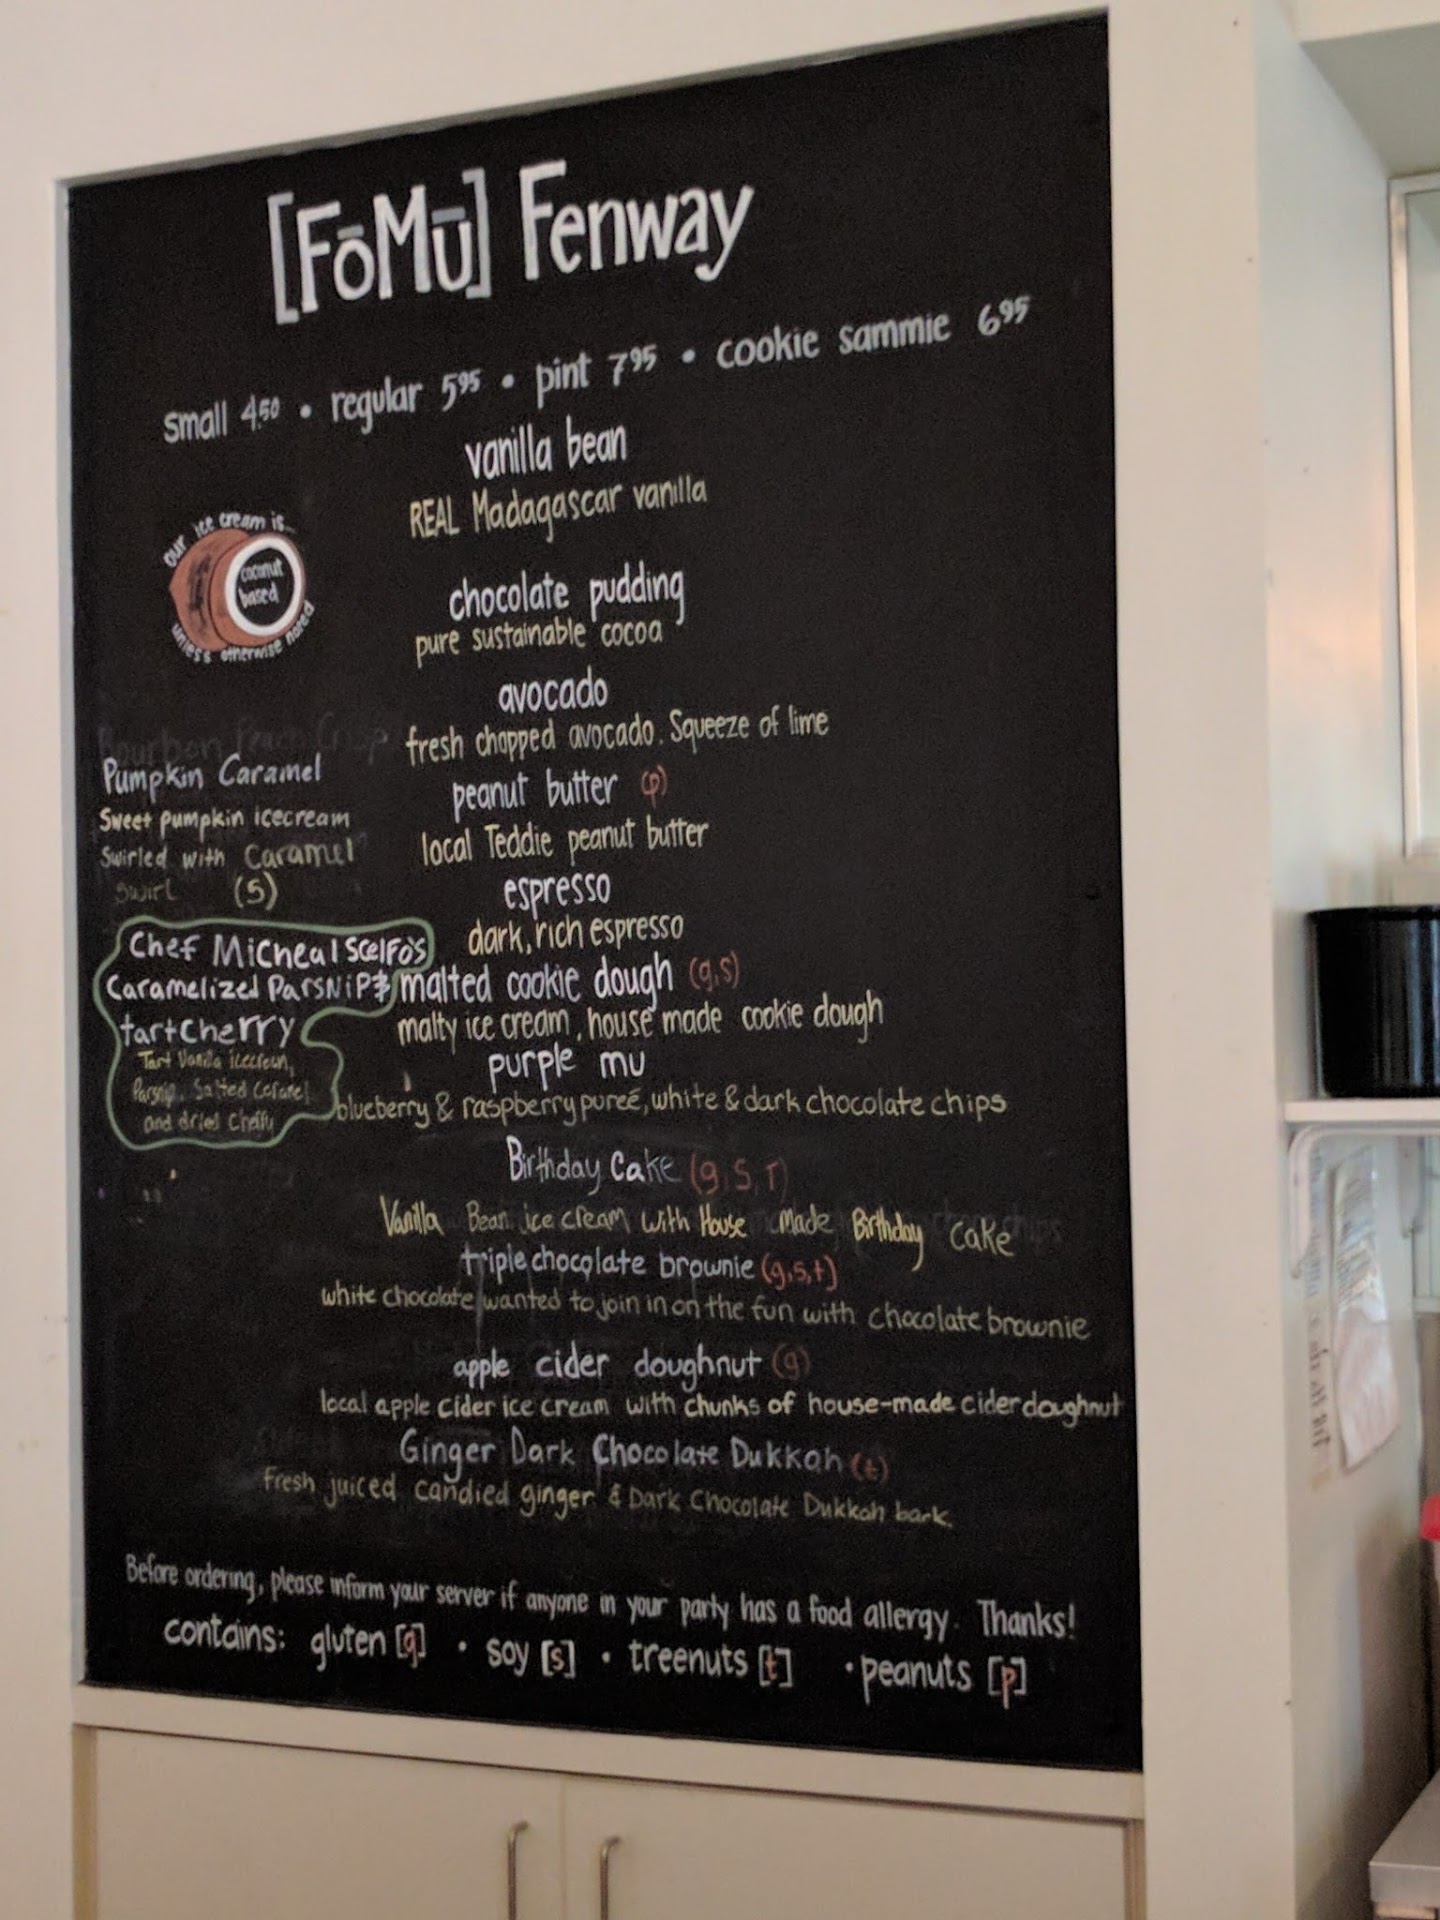 [FōMū] Fenway
small 4.50 • regular 5.95 • pint 7.95 • cookie sammie 6.95
vanilla bean
REAL Madagascar vanilla
our ice cream is...
coconut
based
unless otherwise noted
chocolate pudding
pure sustainable cocoa
avocado
fresh chopped avocado. Squeeze of lime
peanut butter (p)
local Teddie peanut butter
espresso
dark, rich espresso
malted cookie dough (g,s)
malty ice cream, house made cookie dough
purple mu
blueberry & raspberry pureé, white & dark chocolate chips
Birthday Cake (g,s,t)
Vanilla Bean ice cream with House Made Birthday Cake
triple chocolate brownie (g,s,t)
white chocolate wanted to join in on the fun with chocolate brownie
apple cider doughnut (g)
local apple cider ice cream with chunks of house-made cider doughnut
Ginger Dark Chocolate Dukkah (t)
Fresh juiced candied ginger & Dark Chocolate Dukkah bark.
Bourbon Pecan Crisp
Pumpkin Caramel
Sweet pumpkin icecream
Swirled with Caramel
Swirl (S)
Chef Micheal Scelfo's
Caramelized Parsnip &
tart Cherry
Tart Vanilla icecream,
Parsnip, Salted Caramel
and dried Cherry
Before ordering, please inform your server if anyone in your party has a food allergy. Thanks!
contains: gluten [g] • soy [s] • treenuts [t] • peanuts [p]